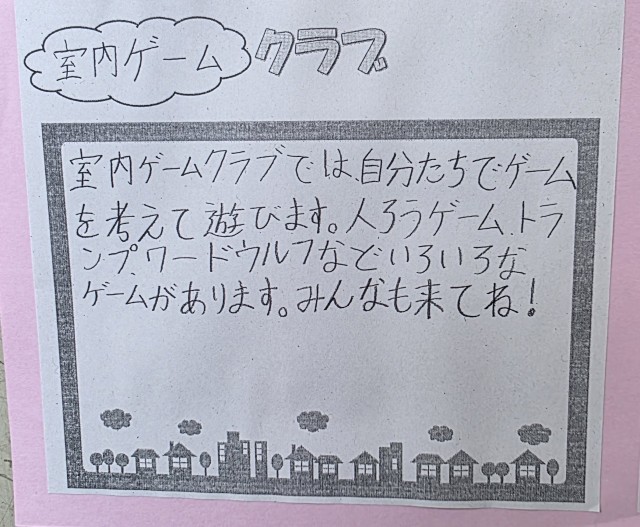 室内ゲーム クラブ
室内ゲームクラブでは、自分たちでゲーム
を考えて遊びます。人ろうゲーム、トラ
ンプ、ワードウルフなどいろいろな
ゲームがあります。みんなも来てね!